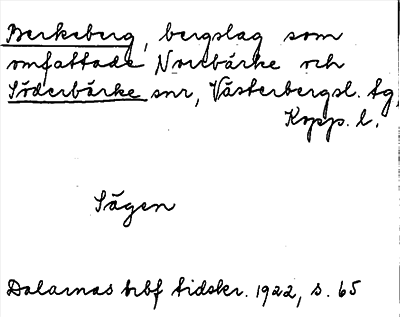 Berkeberg, bergslag som
omfattade Norrbärke och
Söderbärke snr, Västerbergsl. tg,
Kopp. l.
Sägen
Dalarnas hbf tidskr. 1922, s. 65